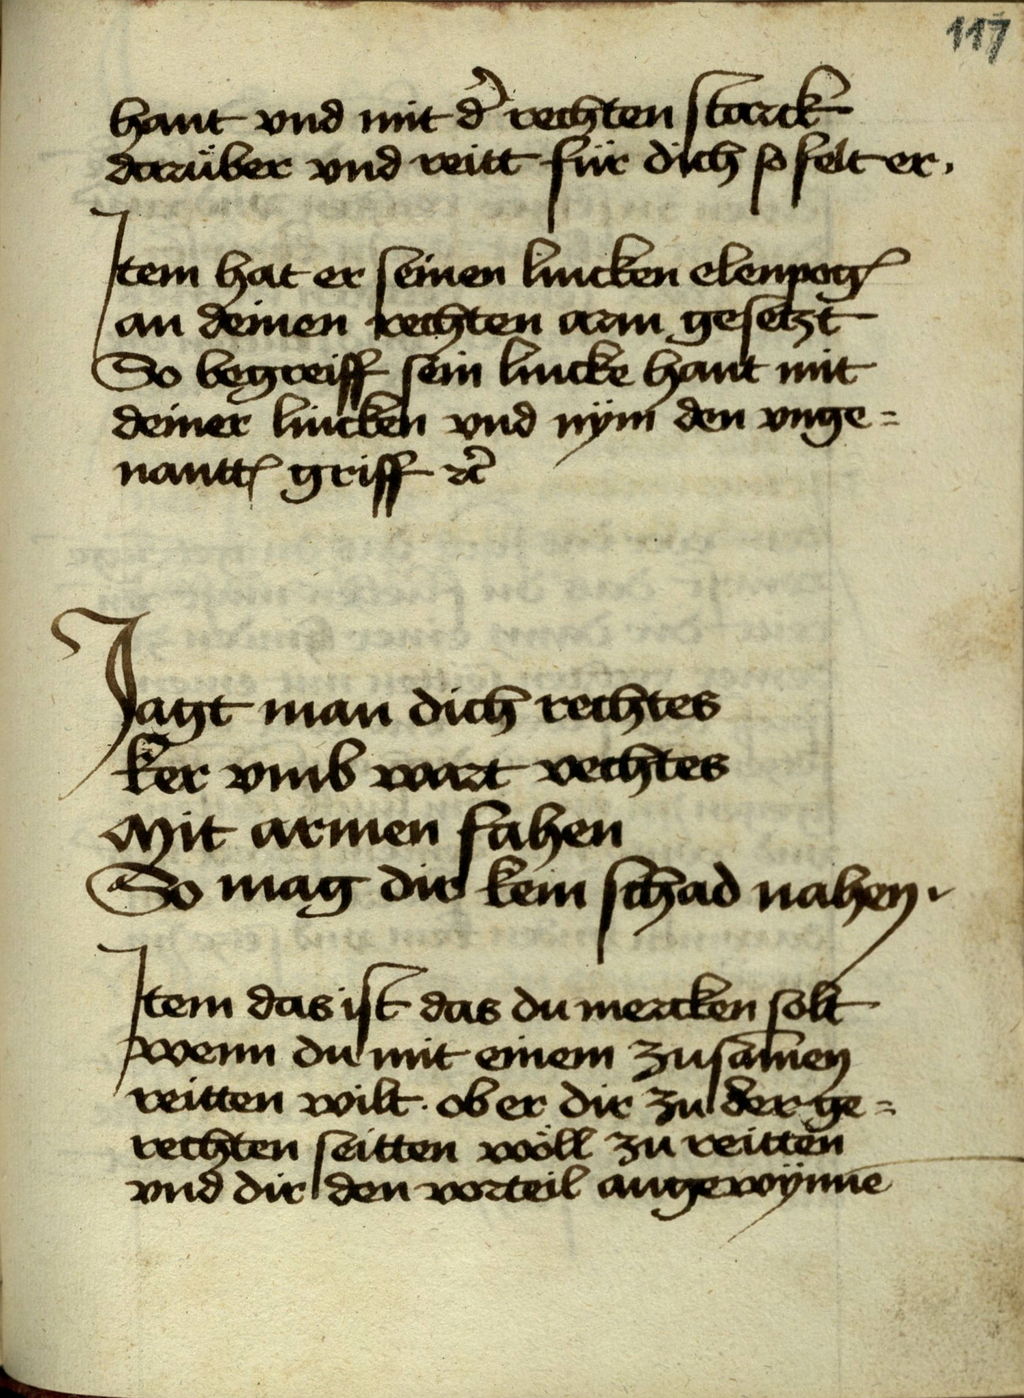 117
hant vnd mit d̉ rechten starck
darüber vnd reitt für dich so felt er.
Item hat er seinen lincken elenpogꝭ
an deinen rechten arm gesetzt
So begreiff sein lincke hant mit
deiner lincken vnd nÿm den vnge=
nanttꝭ griff ꝛc̉
Jagt man dich rechtes
ker vmb wart vechtes
Mit armen fahen
So mag dir kein schad nahen.
Item das ist das du mercken solt
wenn du mit einem zusam̄en
reitten wilt. ob er dir zu der ge=
rechten seitten wöll zu reitten
vnd dir den vorteil angewÿnne